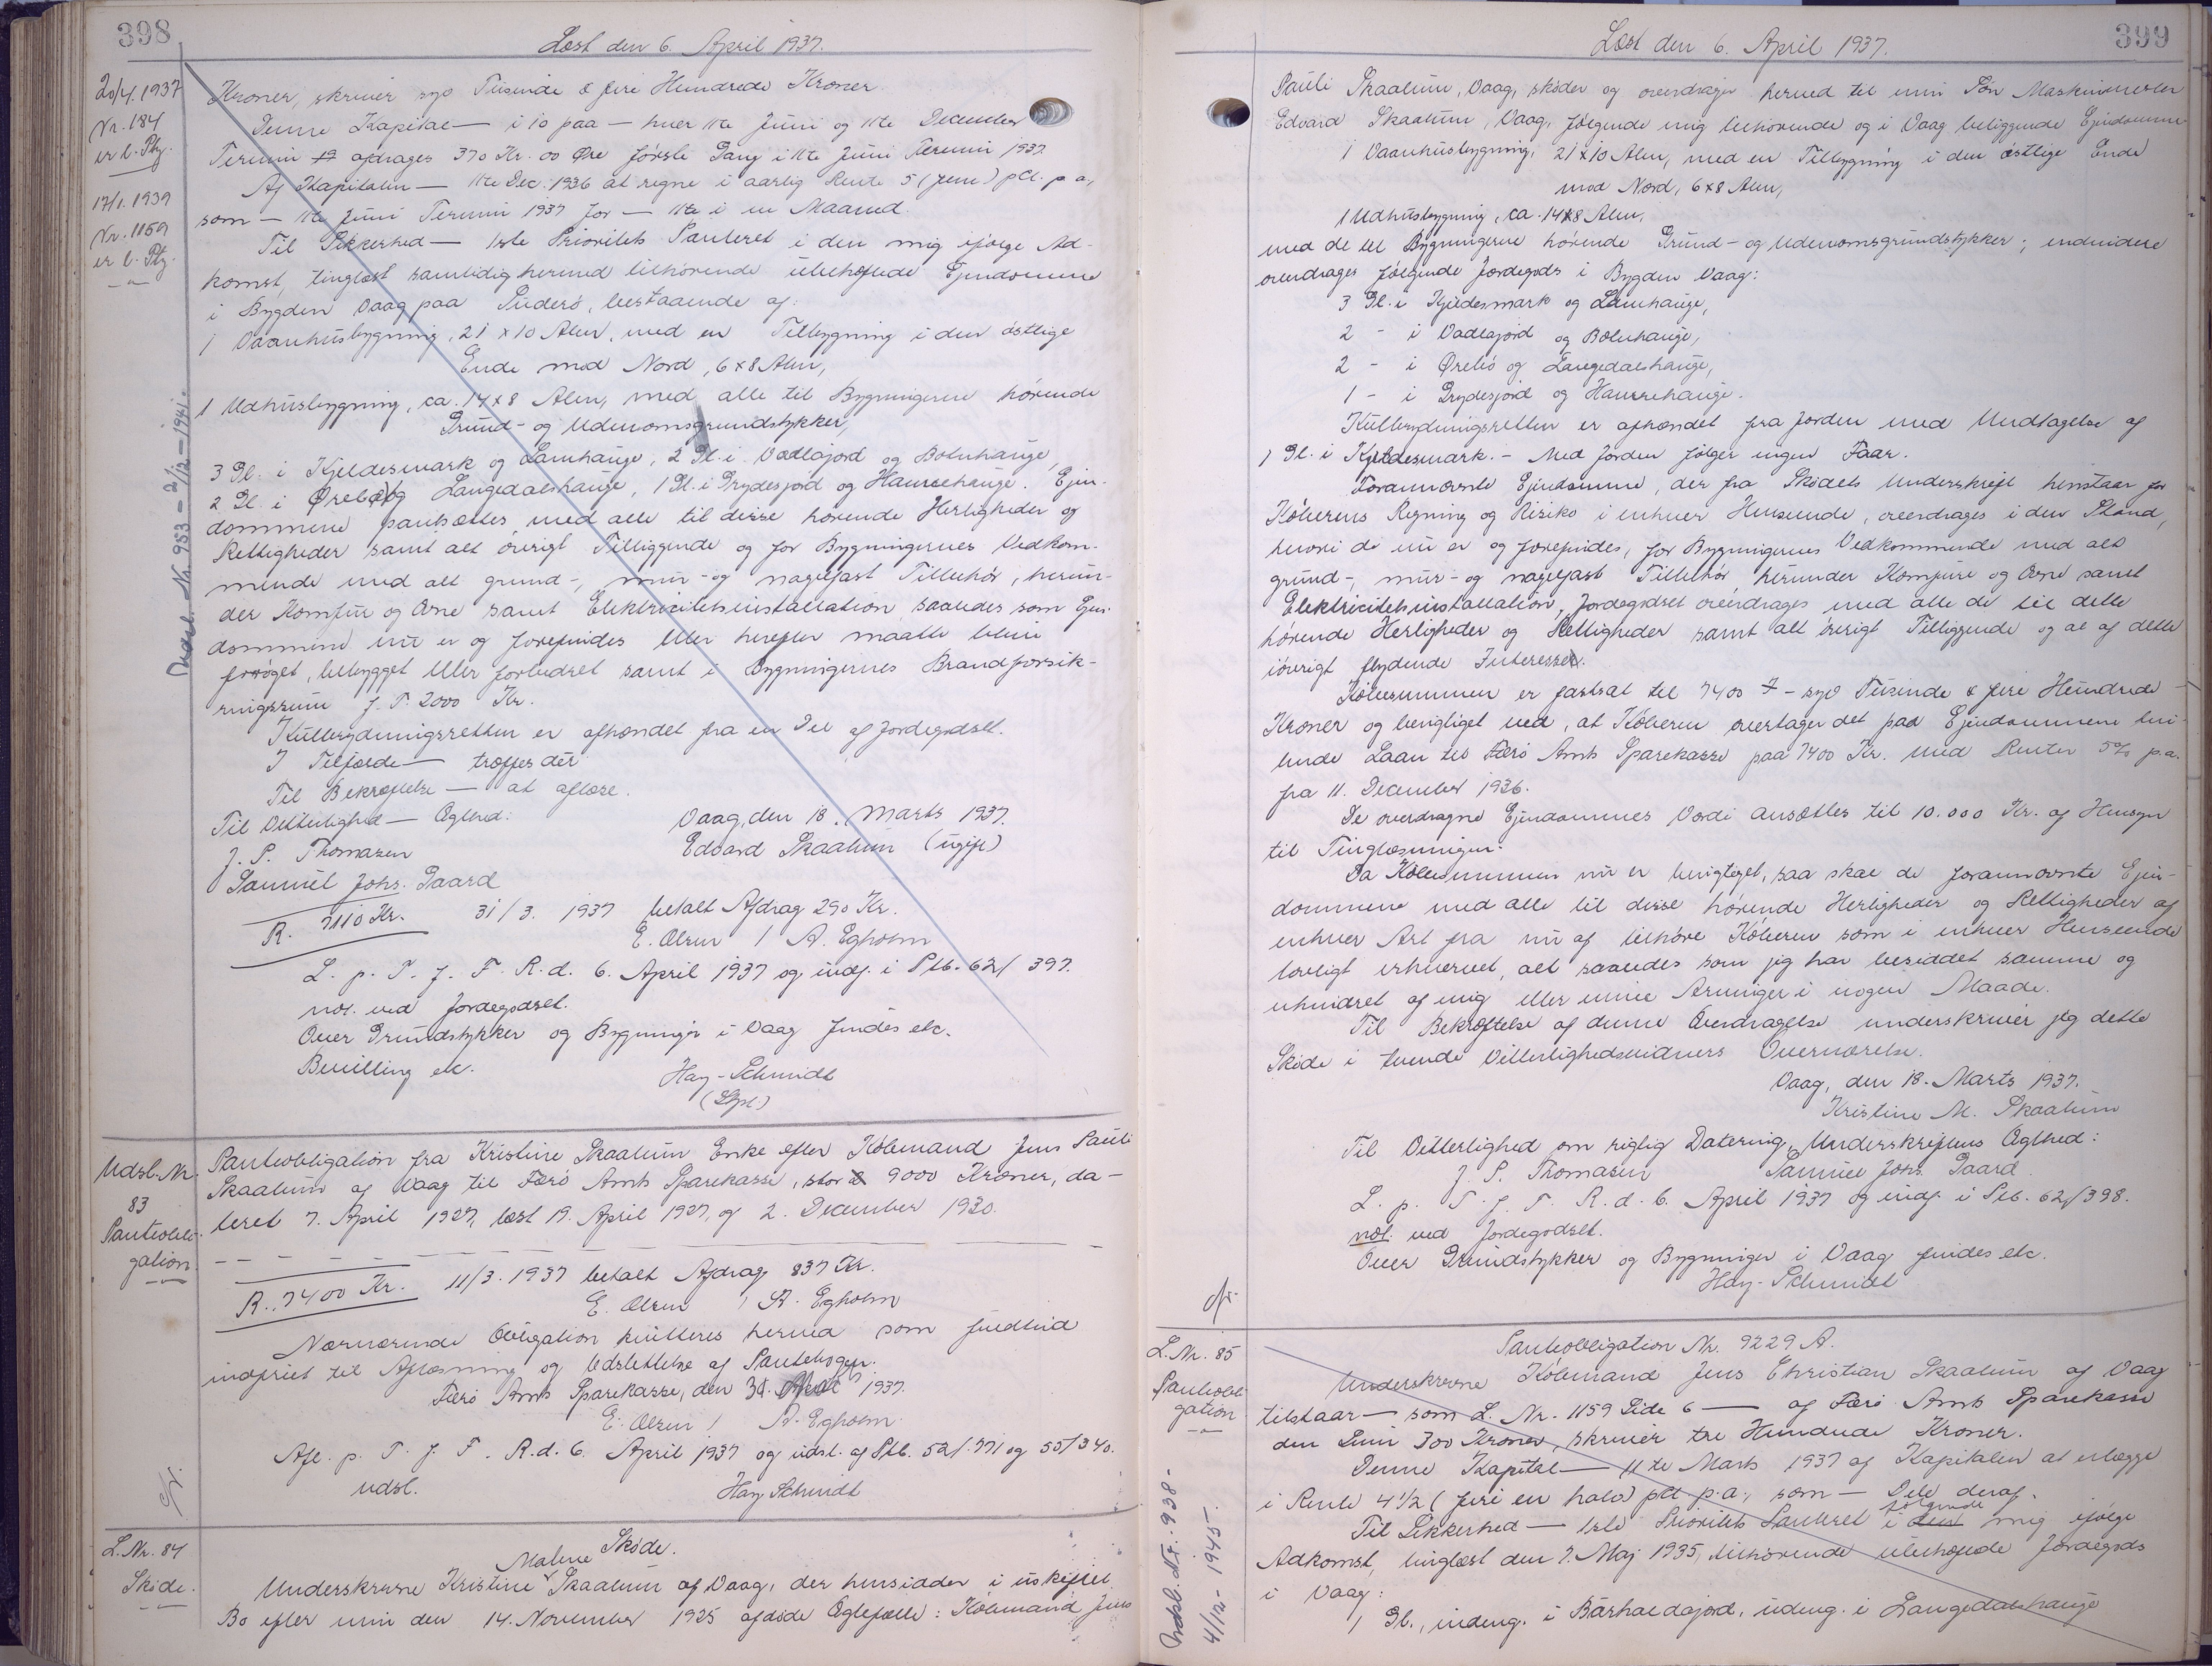 398
Læst den 6. April 1937.
20/4. 1937
Nr. 184
er l. Ptg.
17/1. 1939
Nr. 1159
er l. Ptg.
Udsl. Nr. 953 - 2/12 - 1941.
Kroner, skriver syv Tusinde & fire Hundrede Kroner.
Denne Kapital — i 10 paa — hver 11te Juni og 11te December
Termin afdrages 370 Kr. 00 Øre første Gang i 11te Juni Termin 1937.
Af Kapitalen — 11te Dec. 1936 at regne i aarlig Rente 5 (fem) pCt. p. a.,
som — 11te Juni Termin 1937 for — 11te i en Maaned.
Til Sikkerhed — 1ste Prioritets Panteret i den mig ifølge Ad-
komst, tinglæst samtidig hermed tilhørende ubehæftede Ejendomme
i Bygden Vaag paa Suderø, bestaaende af:
1 Vaanhusbygning, 21 x 10 Alen, med en Tilbygning i den østlige
Ende mod Nord, 6 x 8 Alen,
1 Udhusbygning, ca. 14 x 8 Alen, med alle til Bygningerne hørende
Grund- og Udenomsgrundstykker,
3 Gl. i Kjeldesmark og Lamhauge, 2 Gl. i Vadlajord og Bolnhauge
2 Gl. i Ørebø og Langedalshauge, 1 Gl. i Grydesjord og Hamrehauge. Ejen-
dommene pantsættes med alle til disse hørende Herligheder og
Rettigheder samt alt øvrigt Tilliggende og for Bygningernes Vedkom-
mende med alt grund-, mur- og nagelfast Tilbehør, herun-
der Komfur og Ovne samt Elektricitetsinstallation saaledes som Ejen-
dommene nu er og forefindes eller herefter maatte blive
forøget, bebygget eller forbedret samt i Bygningernes Brandforsik-
ringssum f. T. 2000 Kr.
Kulbrydningsretten er afhændet fra en Del af Jordegodset.
I Tilfælde — træffes der
Til Bekræftelse — at aflæse.
Til Vitterlighed — Ægthed: Vaag, den 18. Marts 1937.
J. P. Thomasen Edvard Skaalum (ugift)
Samuel Johs. Gaard
R. 7110 Kr. 31/3. 1937 betalt Afdrag 290 Kr.
E. Olsen / A. Egholm
L. p. T. f. F. R. d. 6. April 1937 og indf. i Ptb. 62/397.
not. ved Jordegodset.
Over Grundstykker og Bygninger i Vaag findes etc.
Bevilling etc.
Hay-Schmidt
(Stpl.)
Udsl. Nr.
83
Pantobli-
gation.
Panteobligation fra Kristine Skaalum Enke efter Købmand Jens Pauli
Skaalum af Vaag til Færø Amts Sparekasse, stor 9000 Kroner, da-
teret 7. April 1927, læst 19. April 1927, og 2. December 1930.
R. 7400 Kr. 11/3. 1937 betalt Afdrag 837 Kr.
E. Olsen / A. Egholm
Nærværende Obligation kvitteres herved som fuldtud
indfriet til Aflæsning og Udslettelse af Pantebogen.
Færø Amts Sparekasse, den 31. 1937.
E. Olsen / A. Egholm.
Afl. p. T. f. F. R. d. 6. April 1937 og udsl. af Ptb. 52/771 og 55/340.
udsl. Hay Schmidt
cfr.
L. Nr. 84
Skøde.
Skøde.
Malene
Underskrevne Kristine Skaalum af Vaag, der hensidder i uskiftet
Bo efter min den 14. November 1925 afdøde Ægtefælle: Købmand Jens
399
Læst den 6. April 1937.
Pauli Skaalum, Vaag, skøder og overdrager herved til min Søn Maskinmester
Edvard Skaalum, Vaag, følgende mig tilhørende og i Vaag beliggende Ejendomme
1 Vaanhusbygning, 21 x 10 Alen, med en Tilbygning i den østlige Ende
mod Nord, 6 x 8 Alen,
1 Udhusbygning, ca. 14 x 8 Alen,
med de til Bygningerne hørende Grund- og Udenomsgrundstykker; endvidere
overdrages følgende Jordegods i Bygden Vaag:
3 Gl. i Kjeldesmark og Lamhauge,
2 - i Vadlajord og Bolnhauge,
2 - i Ørebø og Langedalshauge,
1 - i Grydesjord og Hamrehauge.
Kulbrydningsretten er afhændet fra Jorden med Undtagelse af
1 Gl. i Kjeldesmark. - Med Jorden følger ingen Faar.
Forannævnte Ejendomme, der fra Skødets Underskrift henstaar for
Køberens Regning og Risiko i enhver Henseende, overdrages i den Stand,
hvori de nu er og forefindes, for Bygningernes Vedkommende med alt
grund-, mur- og nagelfast Tilbehør, herunder Komfure og Ovne samt
Elektricitetsinstallation, Jordegodset overdrages med alle de til dette
hørende Herligheder og Rettigheder samt alt øvrigt Tilliggende og al af dette
iøvrigt flydende Interesser.
Købesummen er fastsat til 7400 - syv Tusinde & fire Hundrede -
Kroner og berigtiget ved, at Køberen overtager det paa Ejendommene hvi-
lende Laan til Færø Amts Sparekasse paa 7400 Kr. med Renter 5% p.a.
fra 11. December 1936.
De overdragne Ejendommes Værdi ansættes til 10.000 Kr. af Hensyn
til Tinglæsningen.
Da Købesummen nu er berigtiget, saa skal de forannævnte Ejen-
domme med alle til disse hørende Herligheder og Rettigheder af
enhver Art fra nu af tilhøre Køberen som i enhver Henseende
lovligt erhvervet, alt saaledes som jeg har besiddet samme og
uhindret af mig eller mine Arvinger i nogen Maade.
Til Bekræftelse af denne Overdragelse underskriver jeg dette
Skøde i tvende Vitterlighedsvidners Overværelse.
Vaag, den 18. Marts 1937.
Kristine M. Skaalum
Til Vitterlighed om rigtig Datering, Underskriftens Ægthed:
J. P. Thomasen Samuel Johs. Gaard.
L. p. T. f. F. R. d. 6. April 1937 og indf. i Ptb. 62/398.
not. ved Jordegodset.
Over Grundstykker og Bygninger i Vaag findes etc.
Hay-Schmidt
cfr.
L. Nr. 85
Pantobli-
gation
Udsl. Nr. 938 -
4/12 - 1945 -
Panteobligation Nr. 9229 A.
Underskrevne Købmand Jens Christian Skaalum af Vaag
tilstaar — som L. Nr. 1159 Side 6 — af Færø Amts Sparekasse
den Sum 300 Kroner, skriver tre Hundrede Kroner.
Denne Kapital — 11te Marts 1937 af Kapitalen at erlægge
i Rente 4 1/2 (fire en halv) pCt p.a., som — Dele deraf.
Til Sikkerhed — 1ste Prioritets Panteret i følgende mig ifølge
Adkomst, tinglæst den 7. Maj 1935, tilhørende ubehæftede Jordegods
i Vaag:
1 Gl., indeng. i Bárhaldajord, udeng. i Langedalshauge